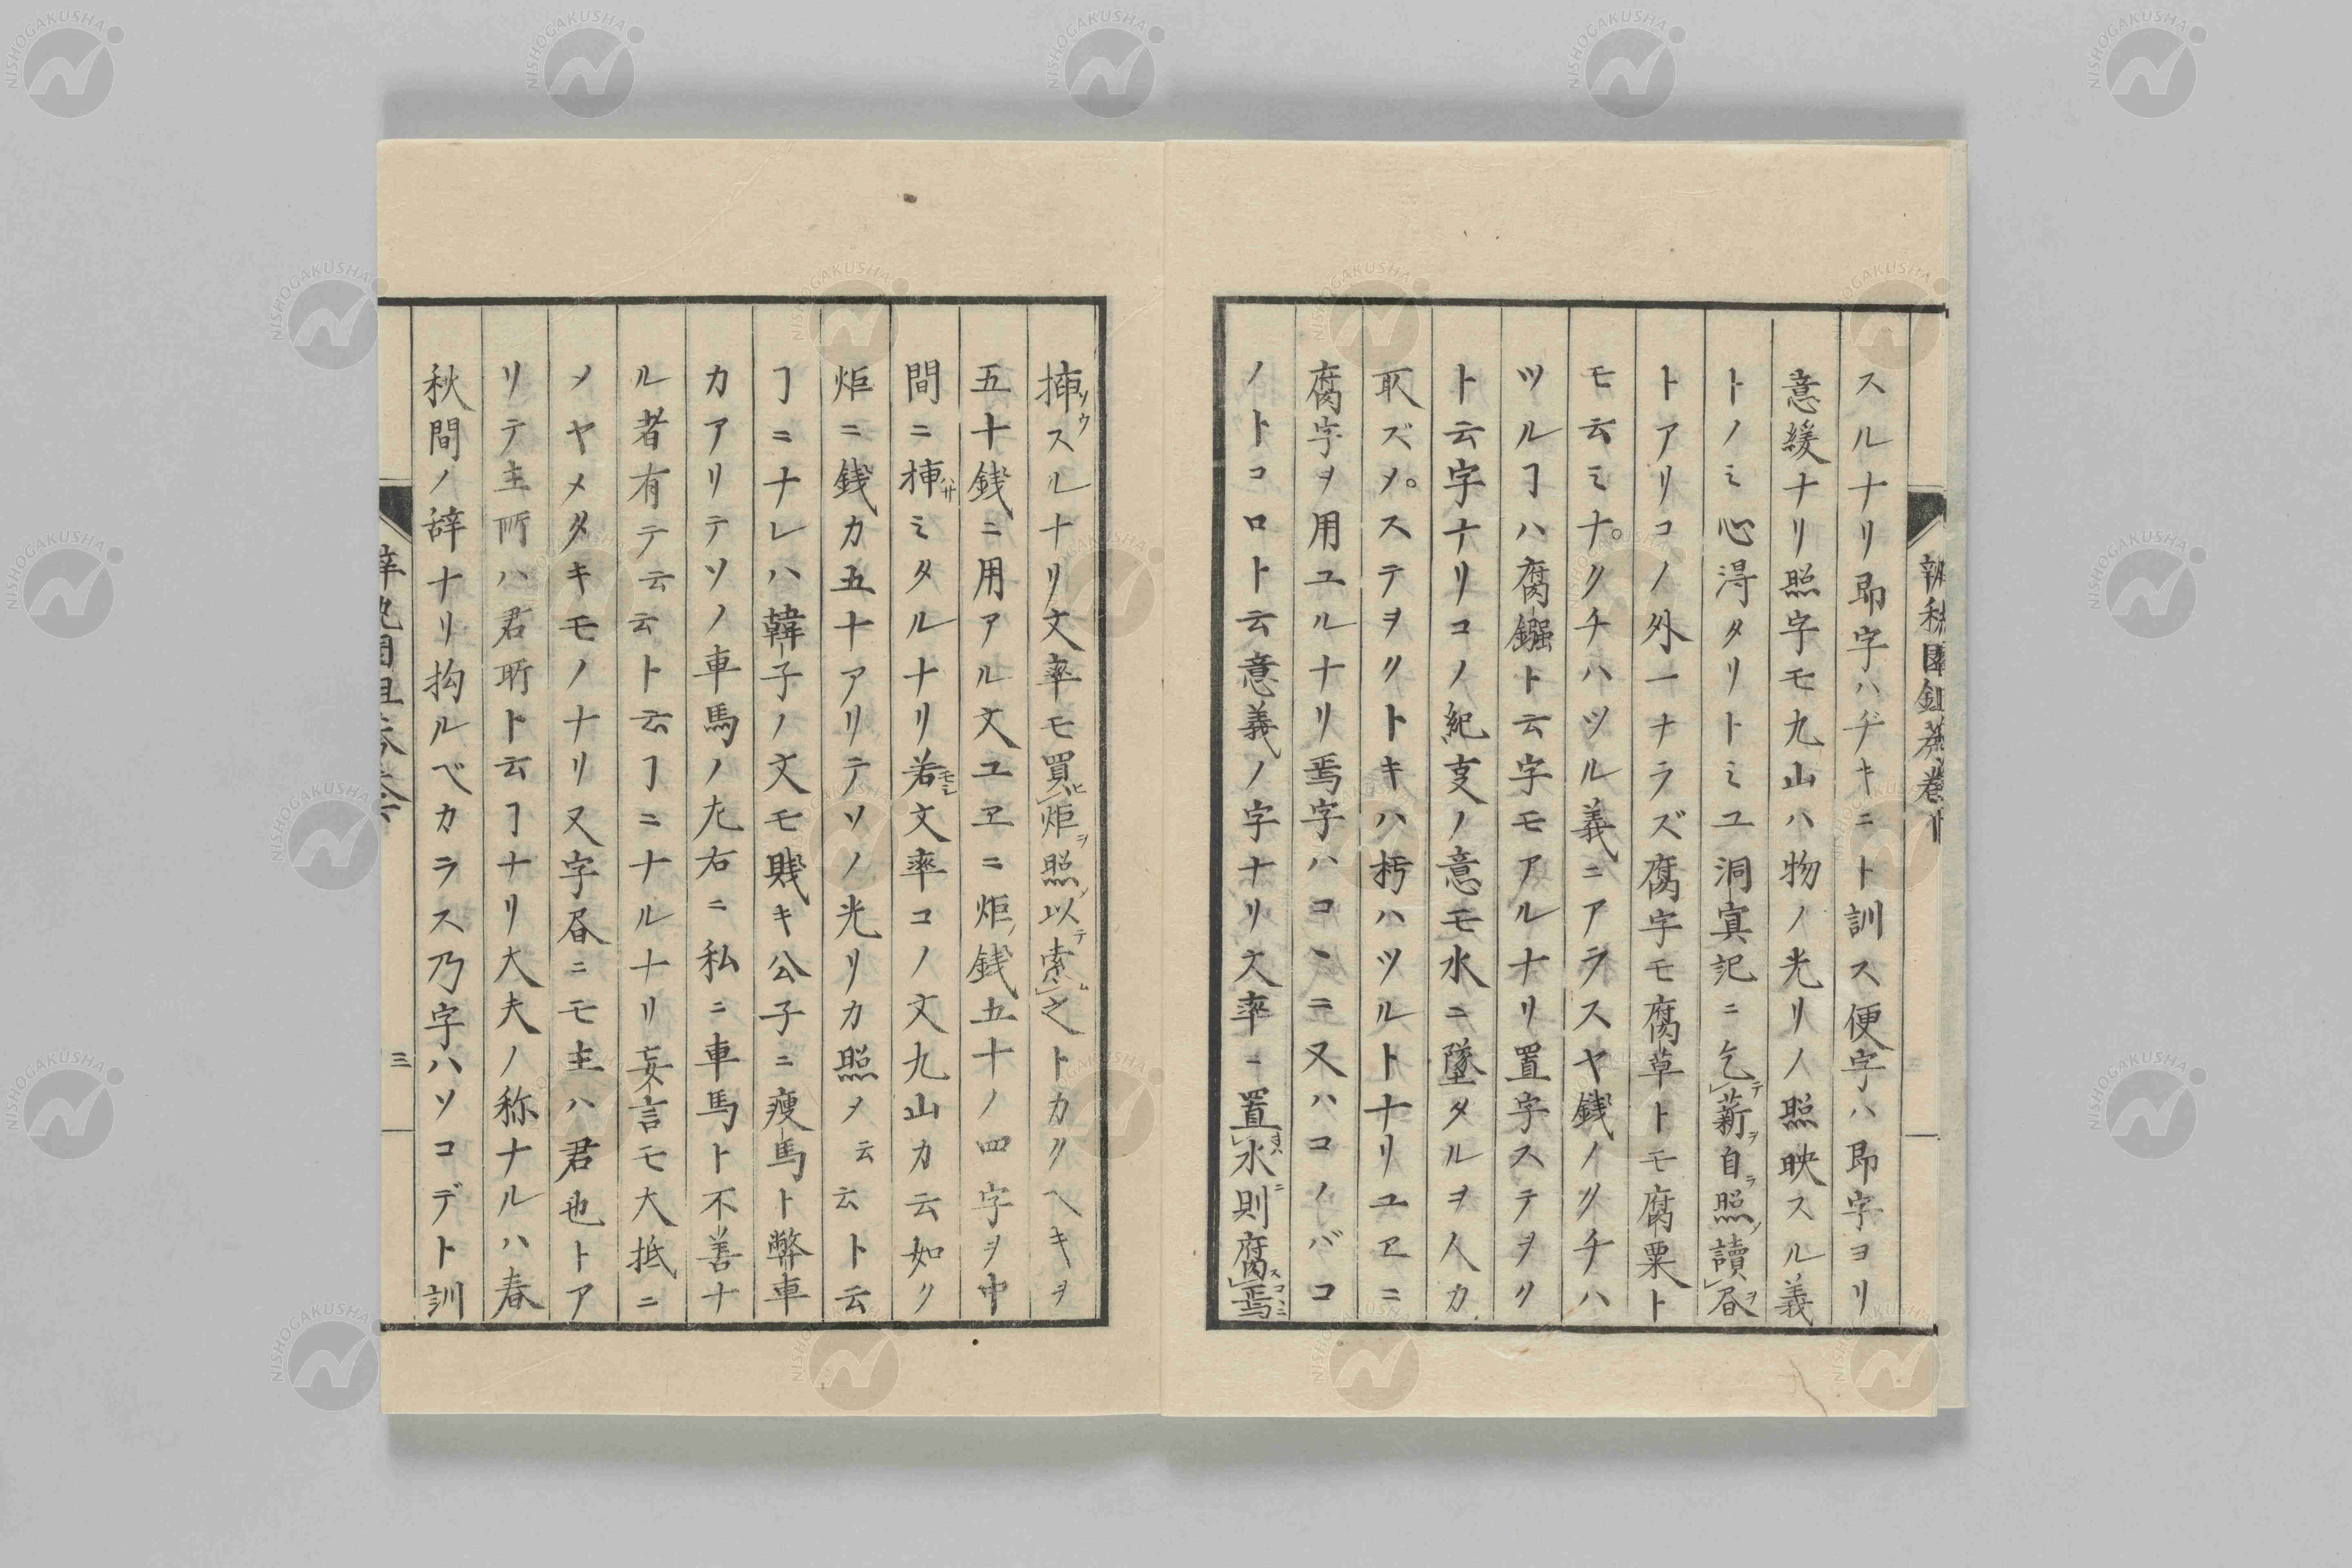 スルナリ即字ハヂキニト訓ス便字ハ即字ヨリ
意緩ナリ照字モ九山ハ物ノ光リノ照映スル義
トノミ心淂タリトミユ洞㝠記ニ乞テ薪ヲ自ラ照ノ讀昼ヲ
トアリコノ外一ナラズ腐字モ腐草トモ腐粟ト
モ云ミナ。クチハツル義ニアラスヤ銭ノクチハ
ツルヿハ腐鏹ト云字モアルナリ置字ステヲク
ト云字ナリコノ紀叓ノ意モ水ニ墜タルヲ人カ
取ズソ。ステヲクトキハ朽ハツルトナリユヱニ
腐字ヲ用ユルナリ焉字ハコヽニ又ハコノバコ
ノトコロト云意義ノ字ナリ文率ニ置ヲス水ニ則腐ス焉コヽニ
挿リウスルナリ文率モ買ヒ炬ヲ照ノ以テ索ム之トカクヘキヲ
五十銭ニ用アル文ユヱニ炬ノ銭五十ノ四字ヲ中
間ニ挿ハサミタルナリ若モシ文率コノ文九山カ云如ク
炬ニ銭カ五十アリテソノ光リカ照ソ云云ト云
ヿニナレハ韓子ノ文モ賎キ公子ニ瘦馬ト弊車
カアリテソノ車馬ノ左右ニ私ニ車馬ト不善ナ
ル者有テ云云ト云ヿニナルナリ妄言モ大抵ニ
ノヤメタキモノナリ又字昼ニモ主ハ君也トア
リテ主所ハ君所ト云ヿナリ大夫ノ称ナルハ春
秋間ノ辞ナリ拘ルベカラス乃字ハソコデト訓
三